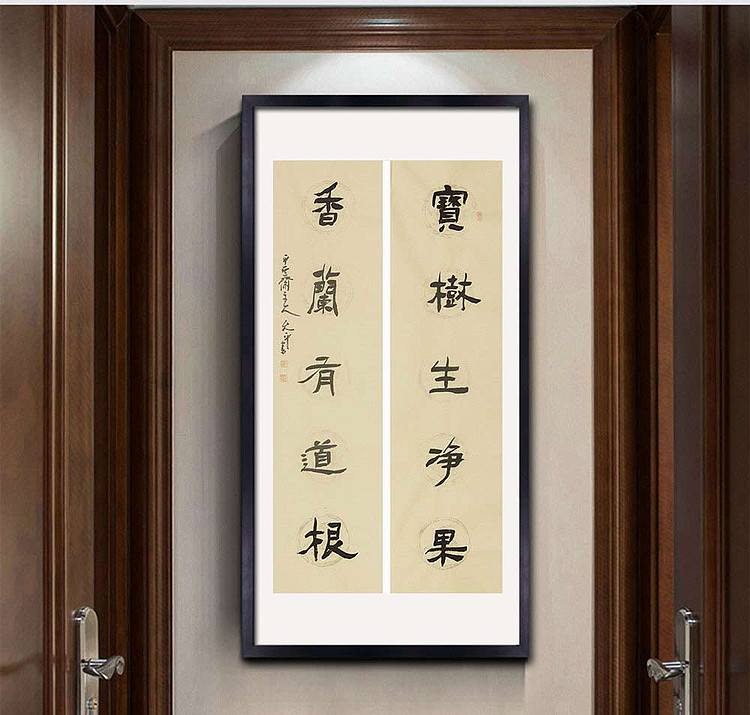 寶樹生净果
香蘭有道根